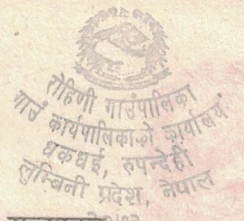 रोहिणी गाउँपालिका
गाउँ कार्यपालिकाको कार्यालय
धकधई, रुपन्देही
लुम्बिनी प्रदेश, नेपाल